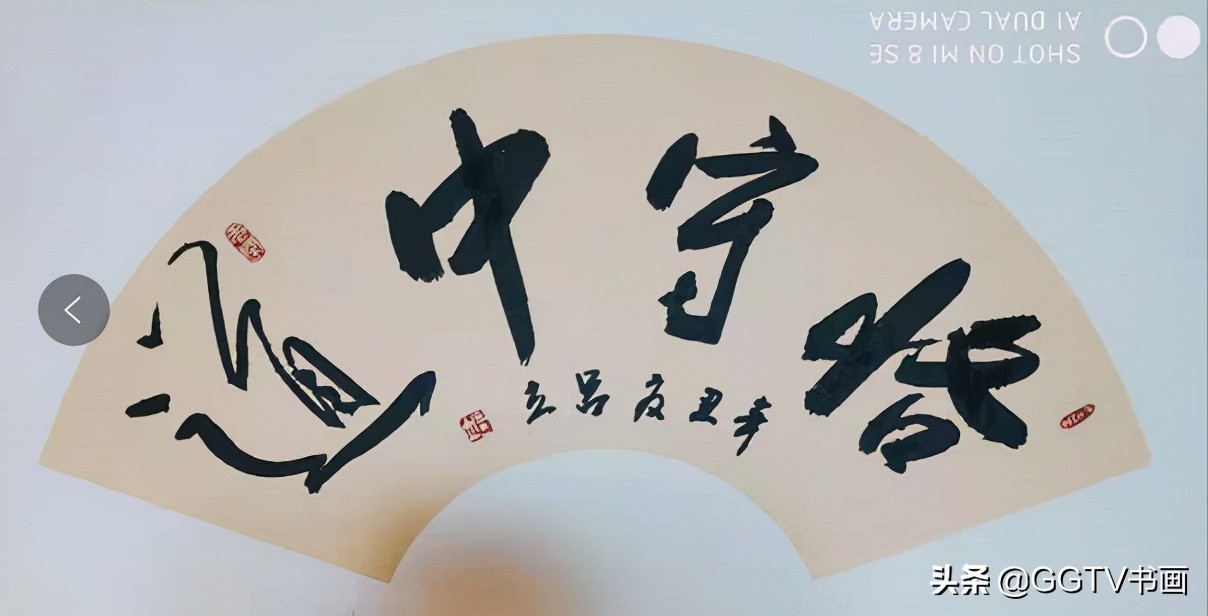 SHOT ON MI 8 SE
AI DUAL CAMERA
守中道
辛丑夏吕立
头条 @GGTV书画